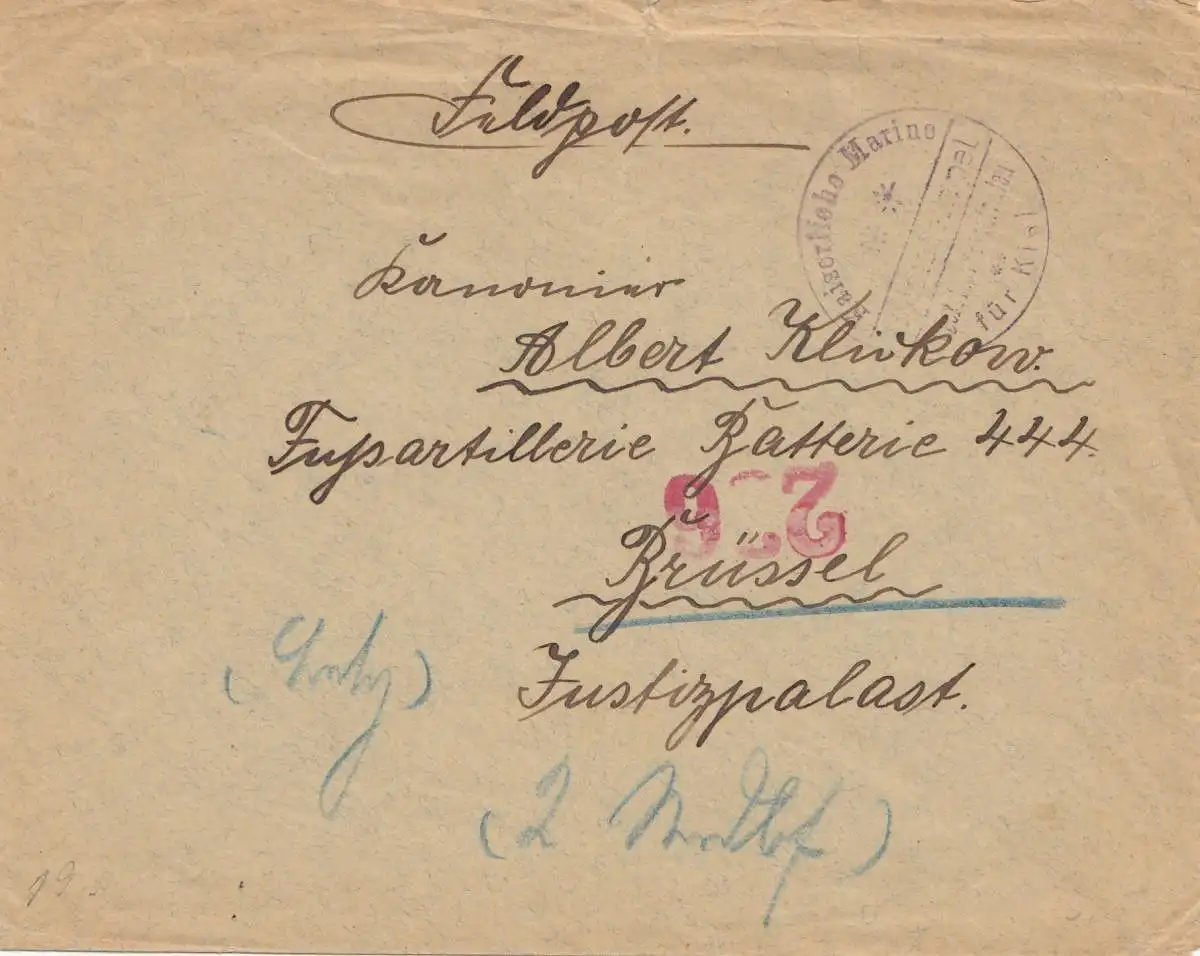 Feldpost.
Kaiserliche Marine
für Kiel
Kanonier
Albert Klukow.
Fußartillerie Batterie 444.
Brüssel
Justizpalast.
(2 )
19